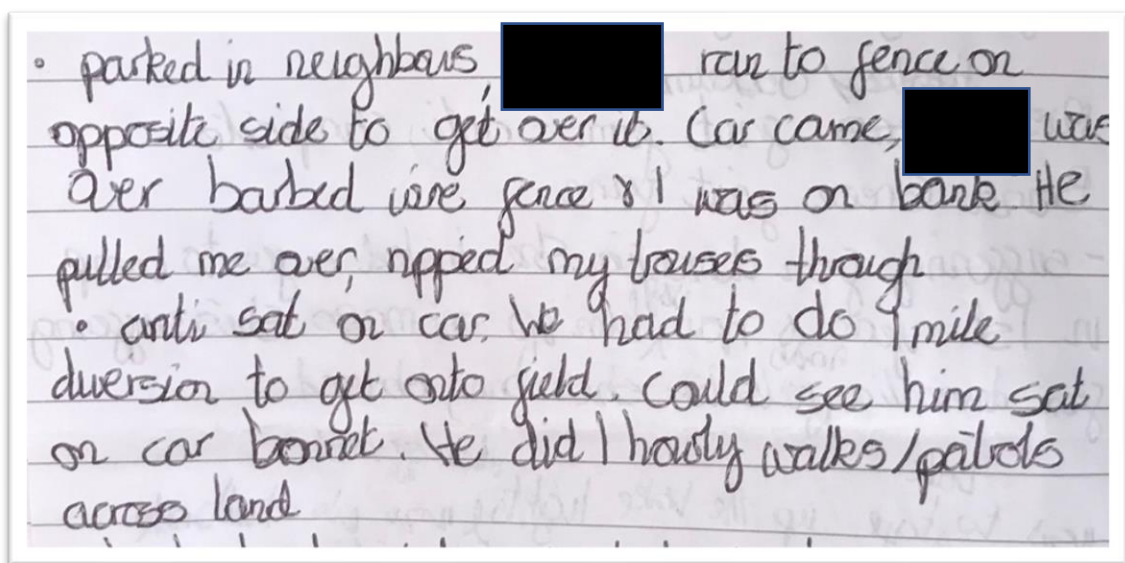 • parked in neighbours, ran to fence on
opposite side to get over it. Car came, was
over barbed wire fence & I was on bank He
pulled me over, ripped my trousers though
• anti sat on car. We had to do 1 mile
diversion to get onto field. Could see him sat
on car bonnet. He did 1 hourly walks/patrols
across land